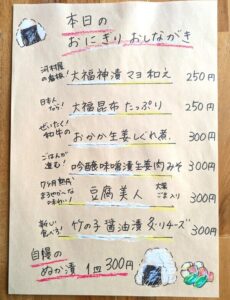 本日の
おにぎり おしながき
河村屋の看板! 大福神漬マヨ和え 250円
日本人なら! 大福昆布たっぷり 250円
ぜいたく!和牛の おかか生姜しぐれ煮. 300円
ごはんが進む! 吟醸味噌漬生姜肉みそ 300円
7ヶ月熟成 まろやか〜な味わい! 豆腐美人 大葉ごま入り 300円
新しい食べ方! 竹の子醤油漬炙りチーズ 300円
自慢の
ぬか漬 1皿 300円